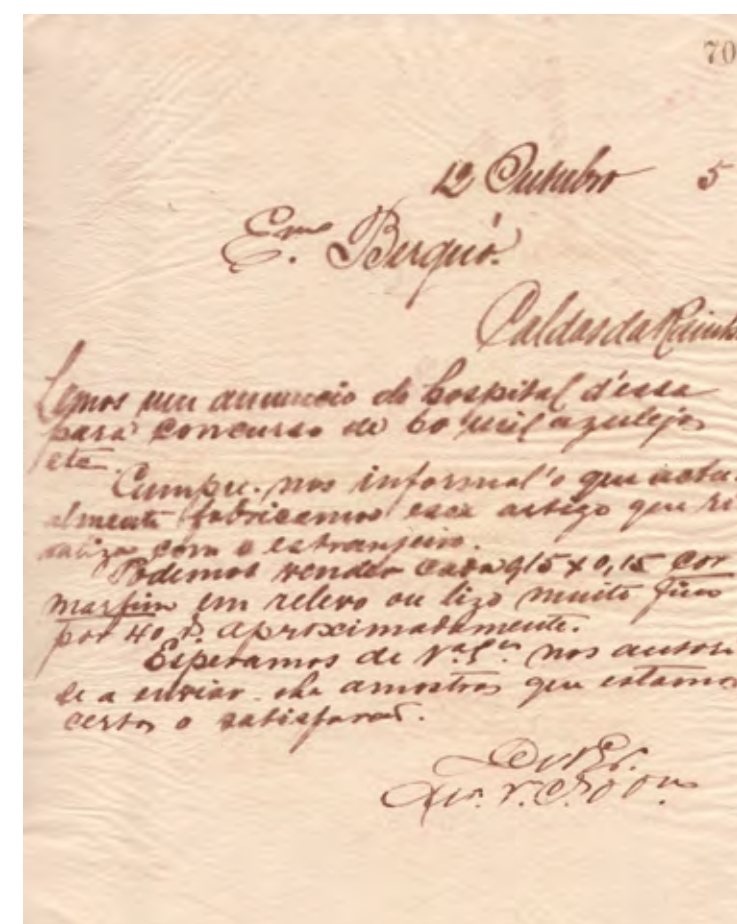 70
12 Outubro 5
Exmo. Berquó.
Caldas da Rainha
Lemos um annuncio do hospital d'essa
para concurso de 60 mil azulejos
etc.
Cumpre-nos informal'o que actu-
almente fabricamos esse artigo que ri-
valiza com o estranjeiro.
Podemos vender cada 0,15 x 0,15 cor
marfim em relevo ou lizo muito fino
por 40 rs. aproximadamente.
Esperamos de Va. Exa. nos autori-
se a enviar-lhe amostras que estamos
certos o satisfará.
De V. Ex.